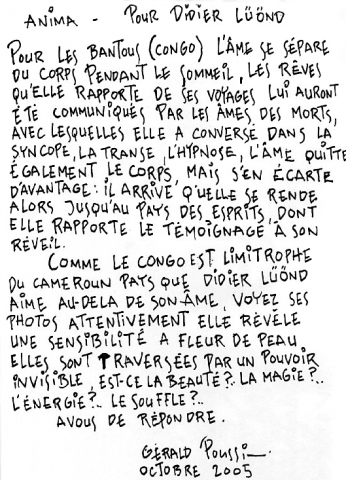 ANIMA - POUR DIDIER LÜÖND
POUR LES BANTOUS (CONGO) L'ÂME SE SÉPARE
DU CORPS PENDANT LE SOMMEIL, LES RÊVES
QU'ELLE RAPPORTE DE SES VOYAGES LUI AURONT
ÉTÉ COMMUNIQUÉS PAR LES ÂMES DES MORTS,
AVEC LESQUELLES ELLE A CONVERSÉ DANS LA
SYNCOPE, LA TRANSE, L'HYPNOSE, L'ÂME QUITTE
ÉGALEMENT LE CORPS, MAIS S'EN ÉCARTE
D'AVANTAGE : IL ARRIVE QU'ELLE SE RENDE
ALORS JUSQU'AU PAYS DES ESPRITS, DONT
ELLE RAPPORTE LE TÉMOIGNAGE À SON
RÉVEIL.
COMME LE CONGO EST LIMITROPHE
DU CAMEROUN PAYS QUE DIDIER LÜÖND
AIME AU-DELA DE SON ÂME, VOYEZ SES
PHOTOS ATTENTIVEMENT ELLE RÉVÈLE
UNE SENSIBILITÉ A FLEUR DE PEAU
ELLES SONT TRAVERSÉES PAR UN POUVOIR
INVISIBLE, EST-CE LA BEAUTÉ ?.. LA MAGIE ?..
L'ÉNERGIE ?.. LE SOUFFLE ?..
AVOUS DE RÉPONDRE.
GÉRALD Poussi
OCTOBRE 2005